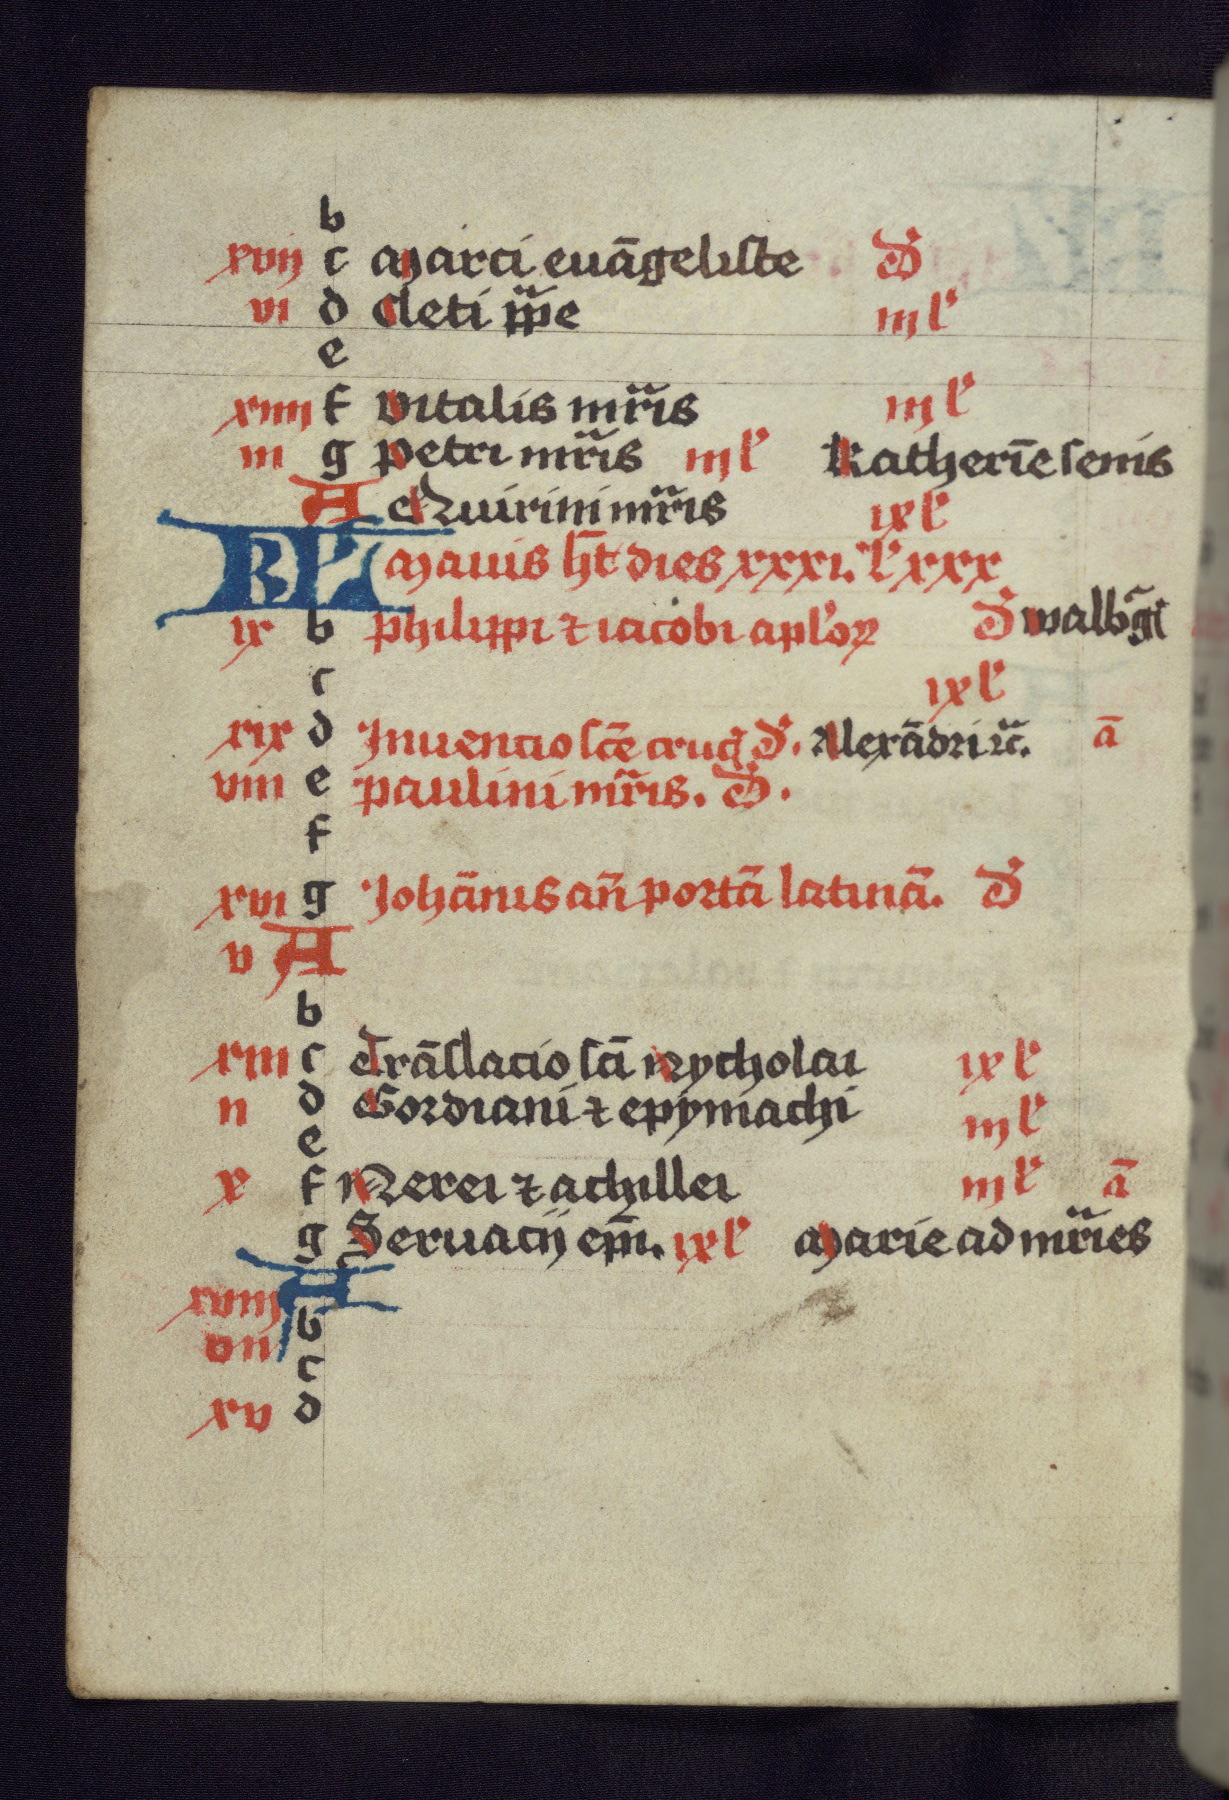 b
xvij c Marci euāgeliste D
vi d Cleti ppe iij lc
e
xiiij f Vitalis mris iij lc
iii g Petri mris iij lc Katherīe senis
A Quirini mris ix lc
KL Mayus ht dies xxxi. lc xxx
ix b Philippi ⁊ iacobi aploꝝ D walbgt
c ix lc
xix d Inuencio scē crucꝭ D. Alexādri ⁊c. ā
viii e Paulini mris. D.
f
xvi g Johānis an̄ portā latinā. D
v A
b
xiii c Trāslacio sci Nycholai ix lc
ii d Gordiani ⁊ epymachi iij lc
e
x f Nerei ⁊ achillei iij lc ā
g Seruacij epi. ix lc Marie ad mr̄ies
xviij A
vii b
c
xv d